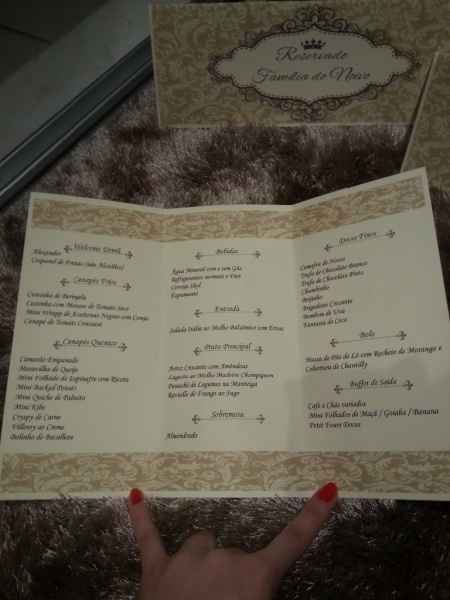 Reservado
Família do Noivo
Welcome Drink
Alexander
Coquetel de Frutas (não Alcoólico)
Canapés Frios
Canoinha de Beringela
Cestinha com Mousse de Tomate Seco
Mini Wrapp de Azeitonas Negras com Creme
Canapé de Tomate Concassé
Canapés Quentes
Camarão Empanado
Maravilha de Queijo
Mini Folhado de Espinafre com Ricota
Mini Backed Potato
Mini Quiche de Palmito
Mini Kibe
Crispy de Carne
Vollovny ao Creme
Bolinho de Bacalhau
Bebidas
Água Mineral com e sem Gás
Refrigerantes normais e Zero
Cerveja Skol
Espumante
Entrada
Salada Italin ao Molho Balsâmico com Ervas
Prato Principal
Arroz Crocante com Amêndoas
Lagarto ao Molho Madeira Champignon
Panachê de Legumes na Manteiga
Raviolle de Frango ao Sugo
Sobremesa
Almendrado
Doces Finos
Camafeu de Nozes
Trufa de Chocolate Branco
Trufa de Chocolate Preto
Churchinho
Beijinho
Brigadeiro Crocante
Bombom de Uva
Fantasia de Coco
Bolo
Massa de Pão de Ló com Recheio de Morango e
Cobertura de Chantilly
Buffet de Saída
Café e Chás variados
Mini Folhados de Maçã / Goiaba / Banana
Petit Fours Doces